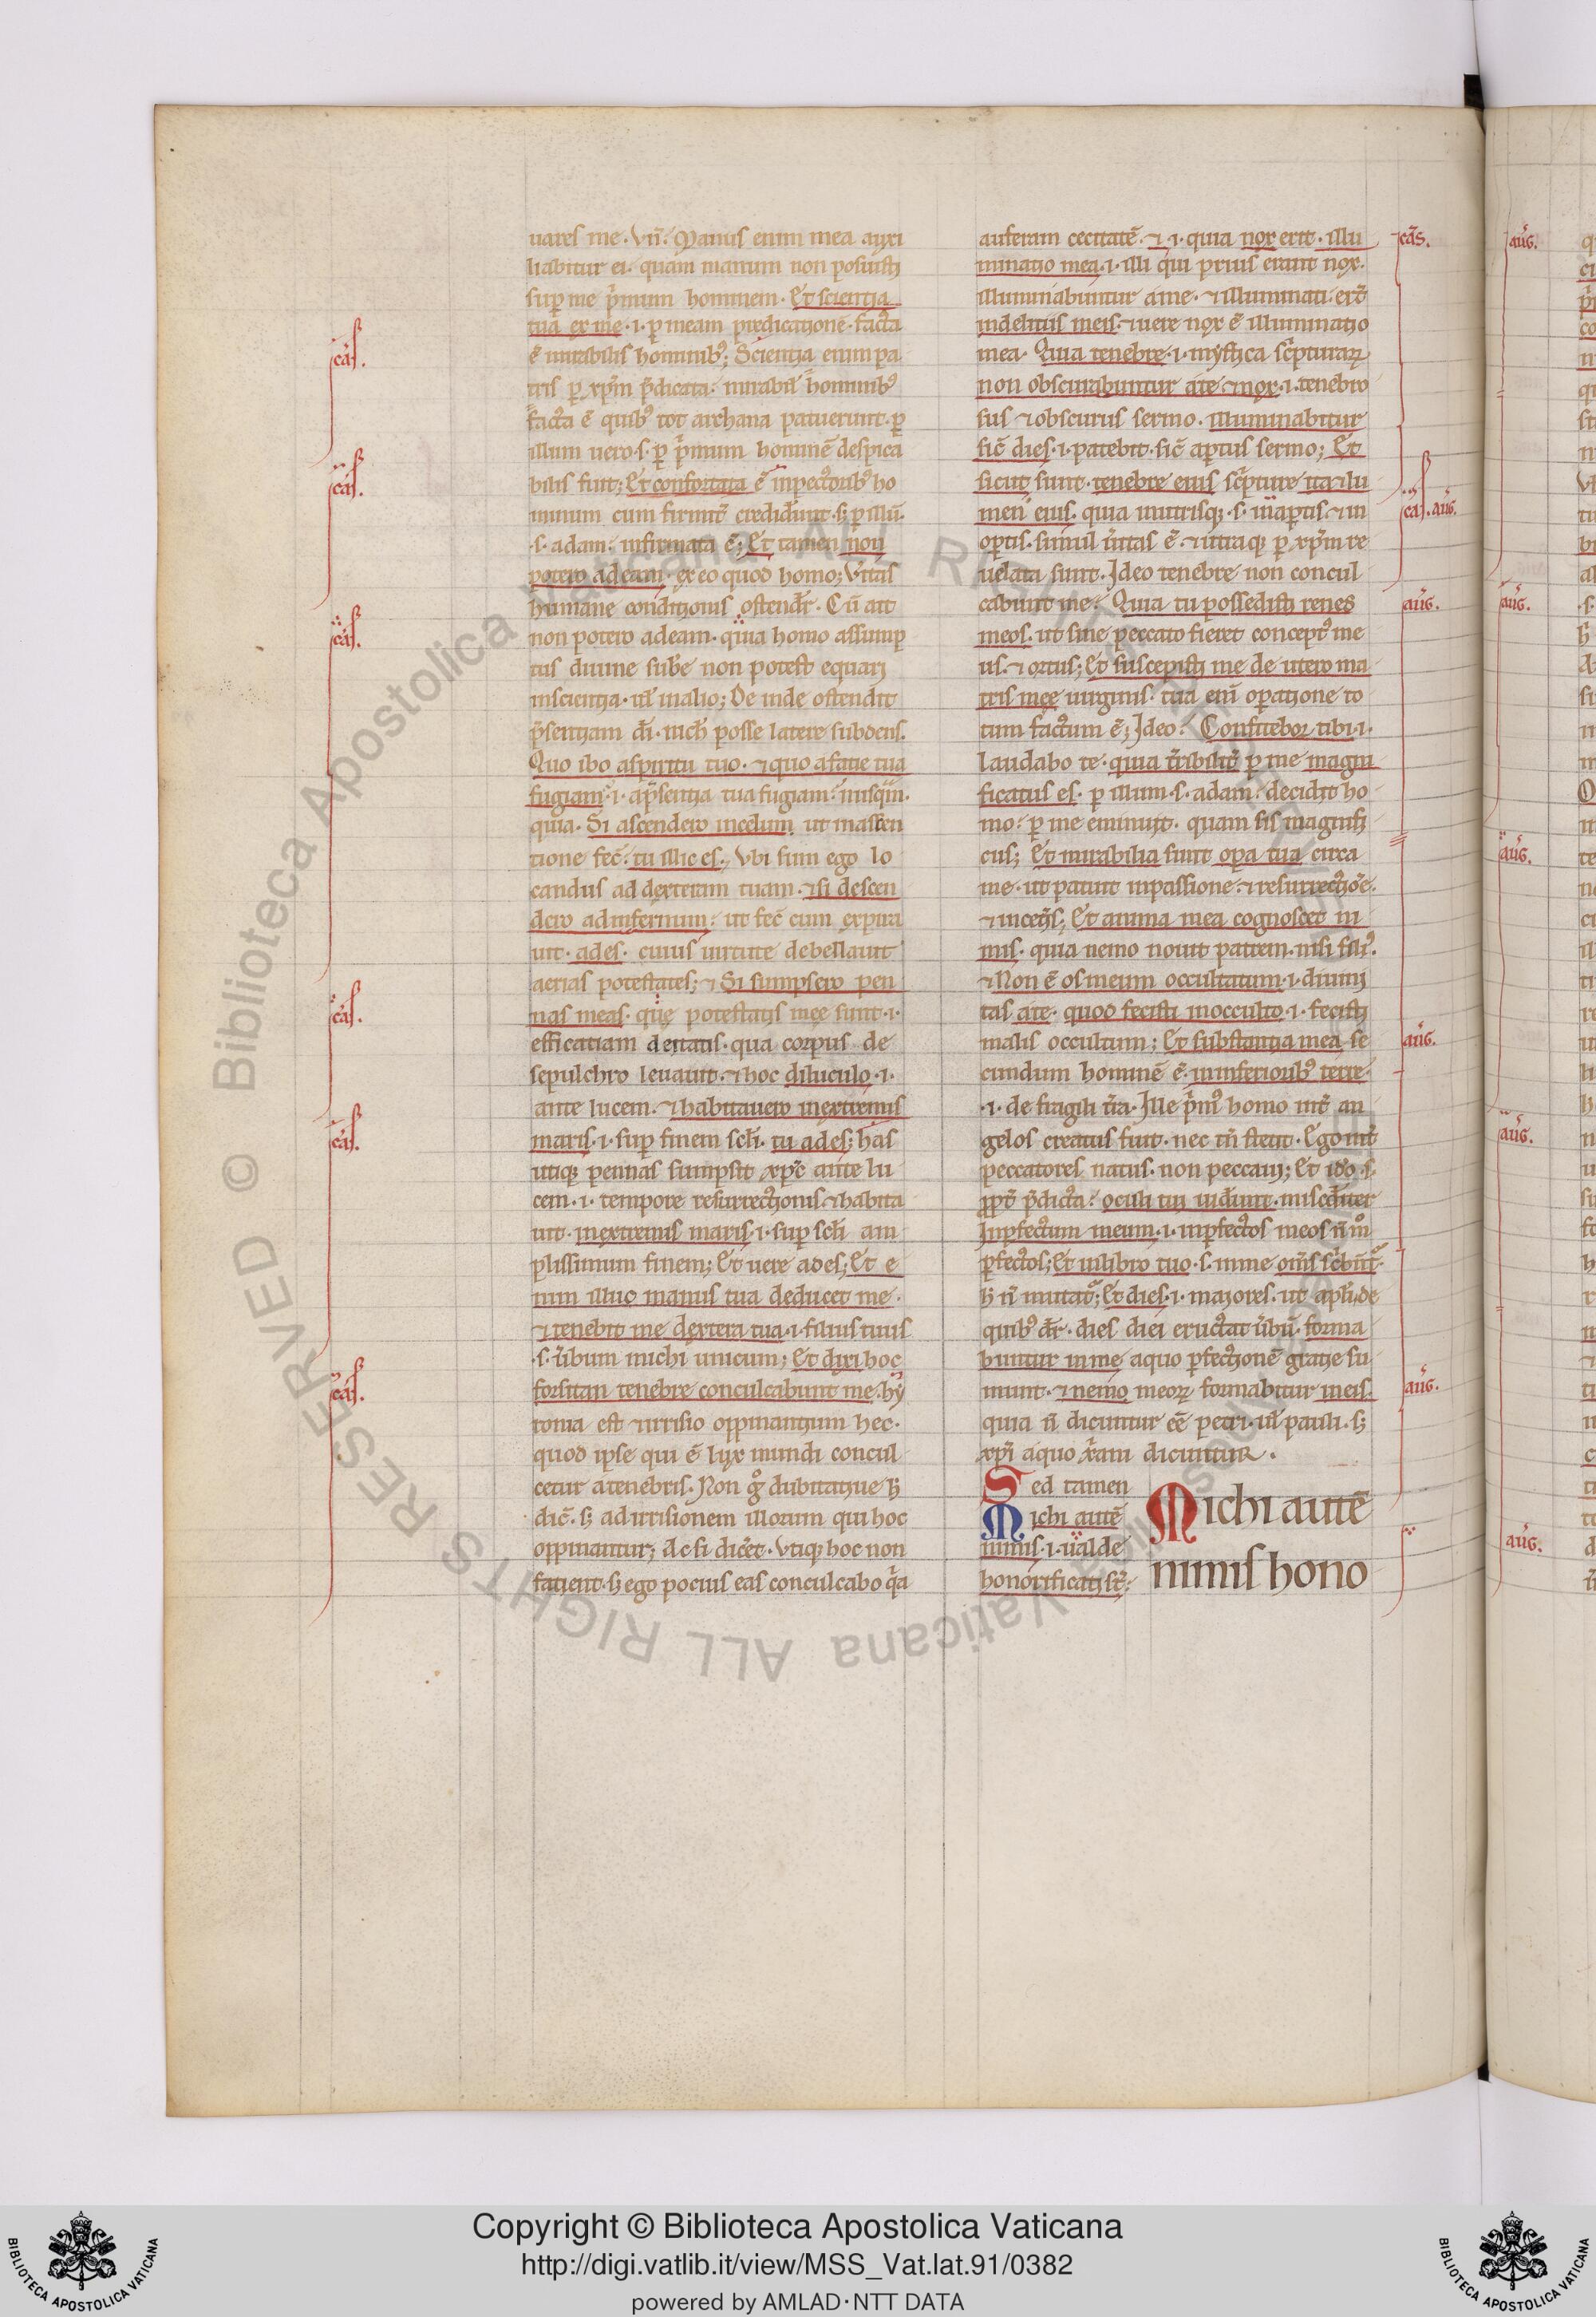 uares me. Vñ. Manus enim mea auxi
liabitur ei. quam manum non posuisti
sup me p̃mum hominem. Et scientia
tua ex me .i. p meam predicationẽ. facta
ẽ mirabilis hominib9; Scientia enim pa
tris p xp̃m p̃dicata. mirabil' hominib9
facta ẽ quib9 tot archana patuerunt. p
illum uero .s. p p̃mum hominẽ despica
bilis fuit; Et confortata ẽ inpectorib9 ho
minum cum firmit̃ crediderunt. s; p illũ
.s. adam. infirmata ẽ; Et tamen non
potero adeam. ex eo quod homo; Vẽtas
humane conditionis ostendit̃. Cũ ait
non potero adeam. quia homo assump
tus diuine sub̃e non potest equari
inscientia. ul' inalio; De inde ostendit
p̃sentiam dĩ. nich' posse latere subdens.
Quo ibo aspiritu tuo. ⁊ quo afacie tua
fugiam .i. ap̃sentia tua fugiam. nusquã.
quia. Si ascendero incelum ut inascen
tione fec̃. tu illic es. Vbi sum ego lo
candus ad dexteram tuam. ⁊ si descen
dero adinfernum. ut fec̃ cum expira
uit. ades. cuius uirtute debellauit
aerias potestates; ⁊ Si sumpsero pen
nas meas. que potestatis mee sunt .i.
efficatiam deitatis. qua corpus de
sepulchro leuauit. ⁊ hoc diluculo .i.
ante lucem. ⁊ habitauero inextremis
maris .i. sup finem scl'i. tu ades; has
utiq; pennas sumpsit xp̃c ante lu
cem .i. tempore resurrectionis. ⁊ habita
uit. inextremis maris .i. sup scl'i am
plissimum finem; Et uere ades; Et e
nim illuc manus tua deducet me.
⁊ tenebit me dextera tua .i. filius tuus
.s. ũbum michi unicum; Et dixi hoc
forsitan tenebre conculcabunt me. hy
ronia est ⁊ irrisio oppinantium hec.
quod ipse qui ẽ lux mundi concul
cetur atenebris. Non g° dubitatiue h;
dic̃. s; ad irrisionem illorum qui hoc
oppinantur; Ac si dicẽt. Vtiq; hoc non
facient. s; ego pocius eas conculcabo q̃a
auferam cecitatẽ. ⁊ i. quia nox erit. illu
minatio mea .i. illi qui prius erant nox.
illuminabuntur ame. ⁊ illuminati. erũt
indelitiis meis. ⁊ uere nox ẽ illuminatio
mea. Quia tenebre .i. mystica sc̃pturaꝝ
non obscurabuntur ate ⁊ nox .i. tenebro
sus ⁊ obscurus sermo. illuminabitur
sic̃ dies .i. patebit. sic̃ aptus sermo; Et
sicut sunt. tenebre eius sc̃pture ita ⁊ lu
men eius. quia inutrisq; .s. inaptis ⁊ in
optis. simul ũitas ẽ. ⁊ utraq; p xp̃m re
uelata sunt. Ideo tenebre non concul
cabunt me. Quia tu possedisti renes
meos. ut sine peccato fieret concept9 me
us. ⁊ ortus; Et suscepisti me de utero ma
tris mee uirginis. tua enĩ opatione to
tum factum ẽ; Ideo. Confitebor tibi .i.
laudabo te. quia t̃ribilit̃ p me magni
ficatus es. p illum .s. adam. decidit ho
mo. p me eminuit. quam sis magnifi
cus; Et mirabilia sunt opa tua circa
me. ut patuit inpassione. ⁊ resurrectiõe.
⁊ incet̃is; Et anima mea cognoscet ni
mis. quia nemo nouit patrem. nisi fili9.
⁊ Non ẽ os meum occultatum .i. diuini
tas ate. quod fecisti inocculto .i. fecisti
malis occultum; Et substantia mea se
cundum hominẽ ẽ. ininferiorib9 terre.
.i. de fragili t̃ra. Ille p̃m9 homo int̃ an
gelos creatus fuit. nec tñ stetit. Ego int̃
peccatores natus. non peccaui; Et ido .s.
ppt̃ p̃dicta. oculi tui uiderunt. misedit̃er
Inpfectum meum .i. inpfectos meos ñ m°
pfectos; Et inlibro tuo .s. inme om̃s sc̃bũt̃.
h ñ mutat̃; Et dies .i. maiores. ut apl'i, de
quib9 dr̃. dies diei eructat ũbũ. forma
buntur inme aquo pfectionẽ gratie su
munt. ⁊ nemo meoꝝ formabitur ineis.
quia ñ dicuntur eẽ petri. ul' pauli. s;
xp̃i aquo x̃ani dicuntur.
Sed tamen
Michi autẽ
nimis .i. ualde
honorificati st̃.
Michi autẽ
nimis hono
cas.
cas.
cas.
cas.
cas.
cas.
cas.
cas. aug.
aug.
aug.
aug.
aug.
aug.
aug.
aug.
aug.
Copyright © Biblioteca Apostolica Vaticana
http://digi.vatlib.it/view/MSS_Vat.lat.91/0382
powered by AMLAD·NTT DATA
BIBLIOTECA APOSTOLICA VATICANA
BIBLIOTECA APOSTOLICA VATICANA
© Biblioteca Apostolica Vaticana ALL RIGHTS RESERVED